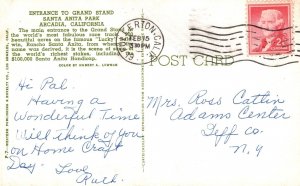 ENTRANCE TO GRAND STAND
SANTA ANITA PARK
ARCADIA, CALIFORNIA
The main entrance to the Grand Stand
the world's most fabulous race track
beautiful acres on the famous "Lucky"
win, Rancho Santa Anita, from where
name was derived. It is the scene of
the world's richest stakes, including
$100,000 Santa Anita Handicap.
COLOR BY ROBERT
ERTON, CAL
FEB 15
PM
POST CARD
Hi Pal
Having a
Wonderful Time
Will think of you
on Home Craft
Day.
Love
Ruth.
Mrs. Ross Catlin
Adams Center
Jeff. co.
N.Y